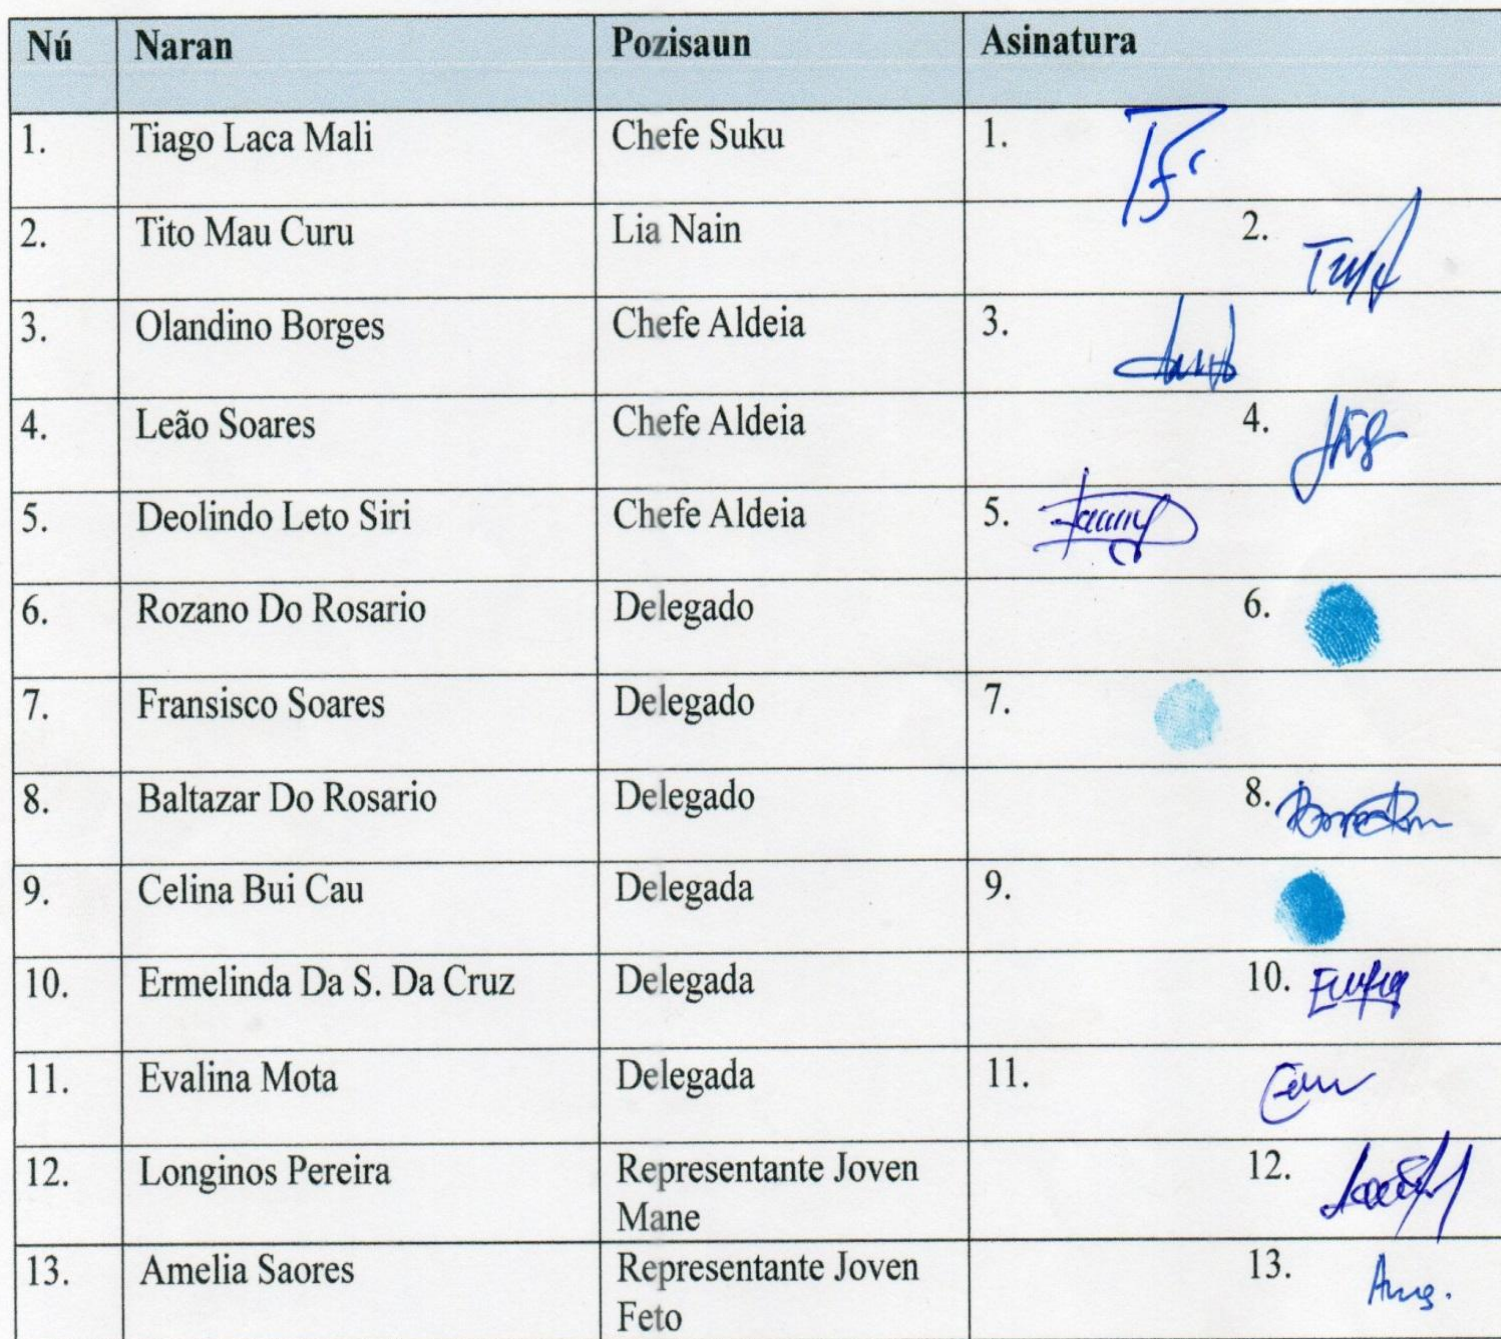 Nú Naran Pozisaun Asinatura
1. Tiago Laca Mali Chefe Suku 1.
2. Tito Mau Curu Lia Nain 2.
3. Olandino Borges Chefe Aldeia 3.
4. Leão Soares Chefe Aldeia 4.
5. Deolindo Leto Siri Chefe Aldeia 5.
6. Rozano Do Rosario Delegado 6.
7. Fransisco Soares Delegado 7.
8. Baltazar Do Rosario Delegado 8.
9. Celina Bui Cau Delegada 9.
10. Ermelinda Da S. Da Cruz Delegada 10.
11. Evalina Mota Delegada 11.
12. Longinos Pereira Representante Joven 12.
Mane
13. Amelia Saores Representante Joven 13.
Feto